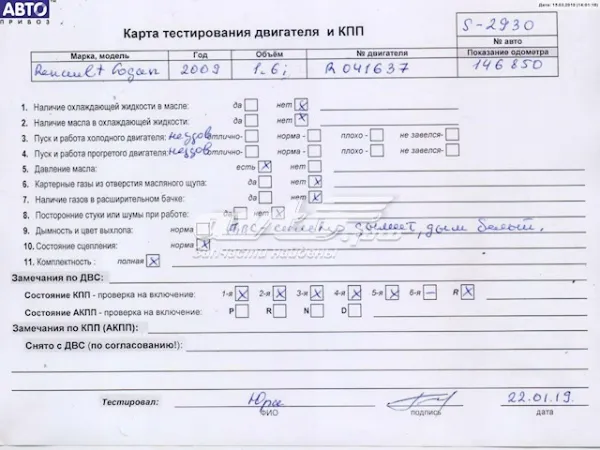 АВТО
ПРИВОЗ
Карта тестирования двигателя и КПП
S-2930
№ авто
Марка, модель Год Объём № двигателя Показание одометра
Renault Logan 2009 1.6i R041637 146850
1. Наличие охлаждающей жидкости в масле: да нет X
2. Наличие масла в охлаждающей жидкости: да нет X
3. Пуск и работа холодного двигателя: отлично- норма - плохо - не завелся-
4. Пуск и работа прогретого двигателя: отлично- норма - плохо - не завелся-
5. Давление масла: есть X нет
6. Картерные газы из отверстия масляного щупа: да нет X
7. Наличие газов в расширительном бачке: да нет X
8. Посторонние стуки или шумы при работе: да нет X
9. Дымность и цвет выхлопа: норма дымеет, дым белый.
10. Состояние сцепления: норма X
11. Комплектность : полная X
Замечания по ДВС:
Состояние КПП - проверка на включение: 1-я X 2-я X 3-я X 4-я X 5-я X 6-я – R X
Состояние АКПП - проверка на включение: P R N D
Замечания по КПП (АКПП):
Снято с ДВС (по согласованию!):
Тестировал: Юра 22.01.19.
ФИО подпись дата